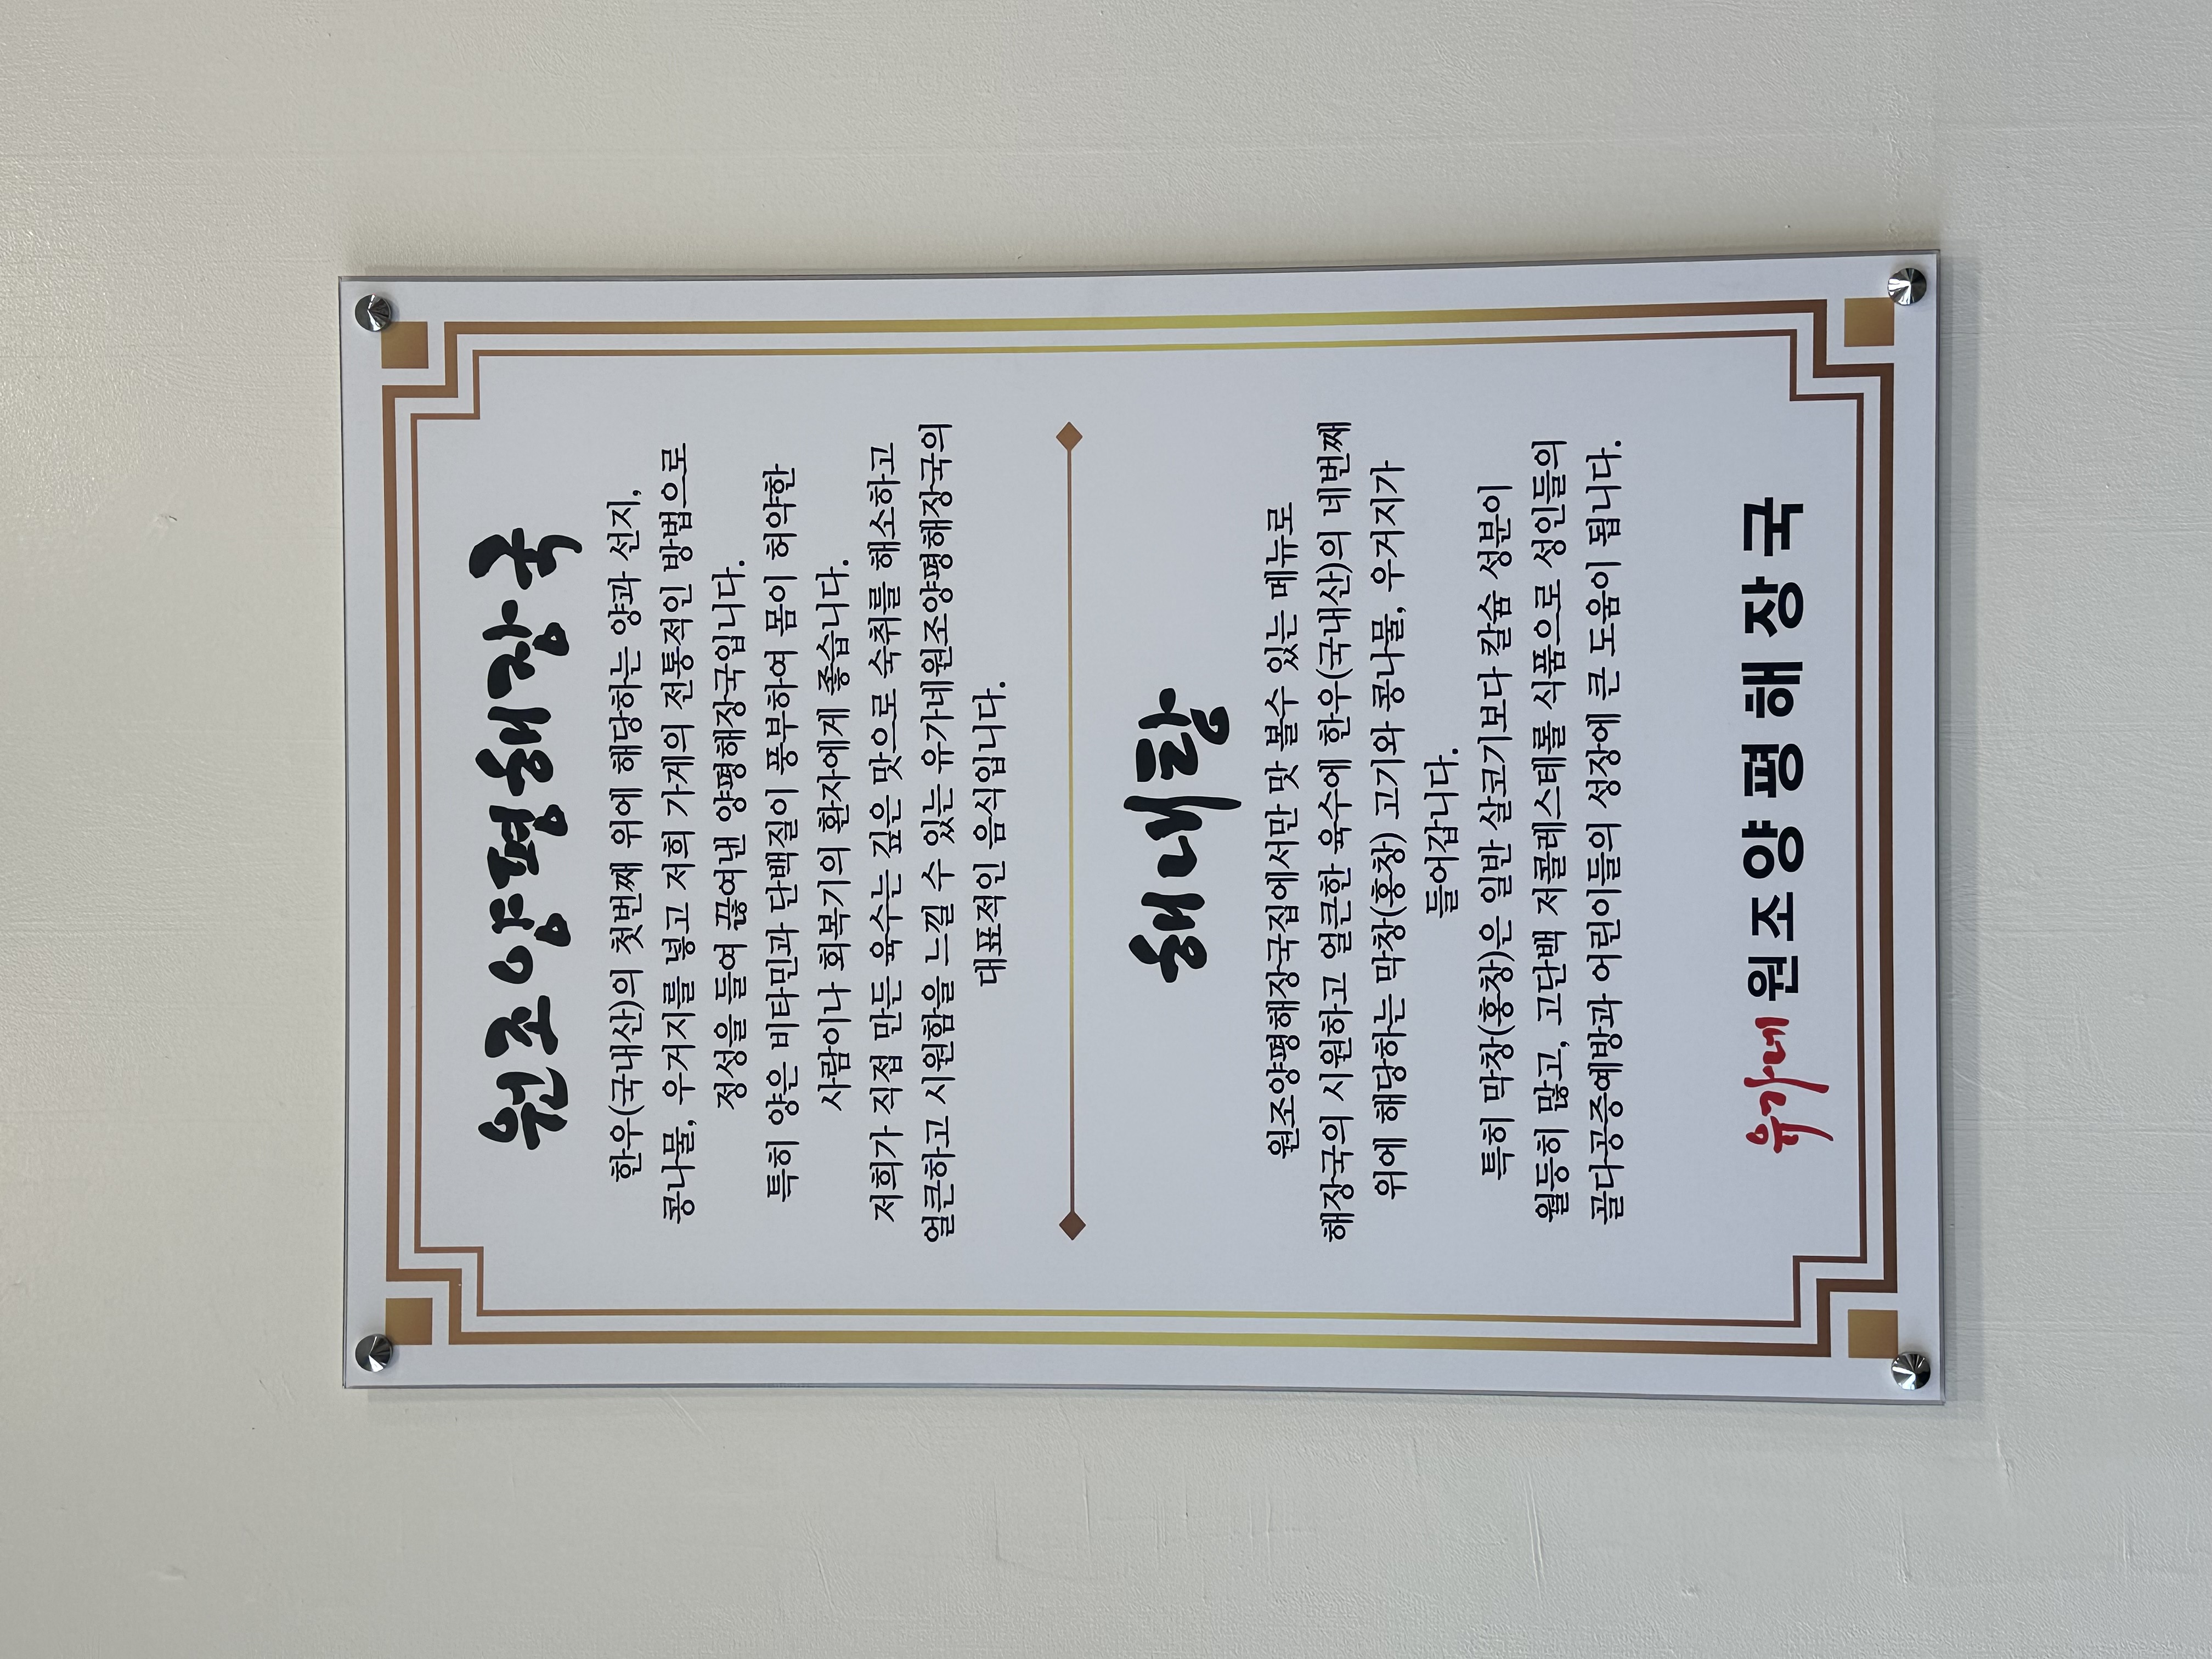 원조양평해장국
한우(국내산)의 첫번째 위에 해당하는 양과 선지,
콩나물, 우거지를 넣고 저희 가게의 전통적인 방법으로
정성을 들여 끓여낸 양평해장국입니다.
특히 양은 비타민과 단백질이 풍부하여 몸이 허약한
사람이나 회복기의 환자에게 좋습니다.
저희가 직접 만든 육수는 깊은 맛으로 숙취를 해소하고
얼큰하고 시원함을 느낄 수 있는 유가네원조양평해장국의
대표적인 음식입니다.
해내탕
원조양평해장국집에서만 맛 볼수 있는 메뉴로
해장국의 시원하고 얼큰한 육수에 한우(국내산)의 네번째
위에 해당하는 막창(홍창) 고기와 콩나물, 우거지가
들어갑니다.
특히 막창(홍창)은 일반 살코기보다 칼슘 성분이
월등히 많고, 고단백 저콜레스테롤 식품으로 성인들의
골다공증예방과 어린이들의 성장에 큰 도움이 됩니다.
유가네 원조양평해장국